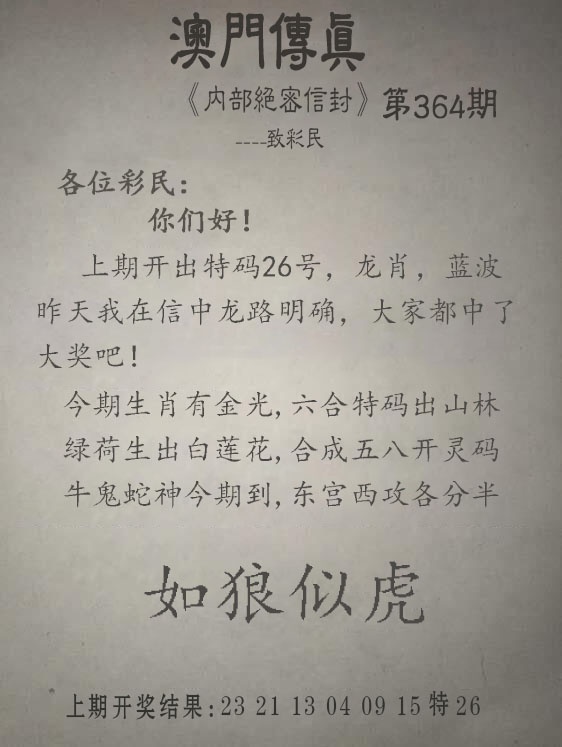 澳門傳眞
《内部絕密信封》第364期
----致彩民
各位彩民：
你们好！
上期开出特码26号，龙肖，蓝波
昨天我在信中龙路明确，大家都中了
大奖吧！
今期生肖有金光,六合特码出山林
绿荷生出白莲花,合成五八开灵码
牛鬼蛇神今期到,东宫西攻各分半
如狼似虎
上期开奖结果:23 21 13 04 09 15特26